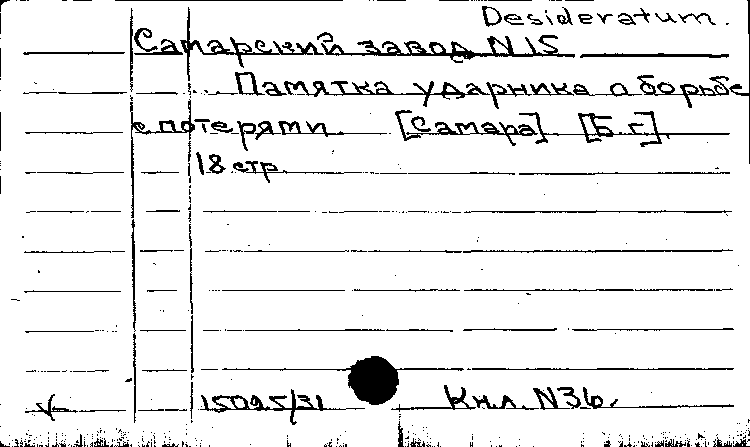 Desideratum.
Самарский завод N 15
... Памятка ударника о борьбе
с потерями. [Самара]. [Б.г.].
18 стр.
15095/31 Кн.л. N36.